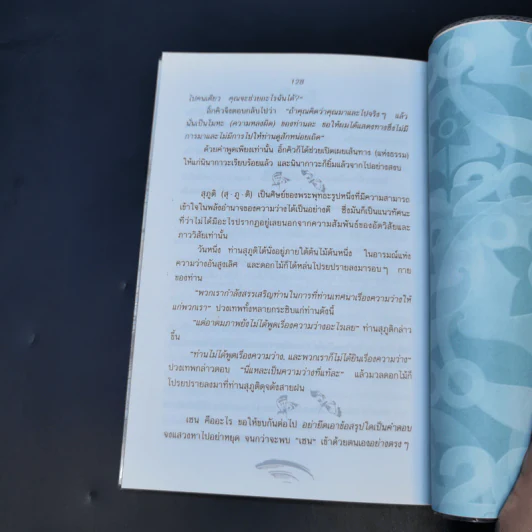 128
ไปคนเดียว คุณจะช่วยอะไรฉันได้?"
อิ๊กคิวจึงตอบกลับไปว่า "ถ้าคุณคิดว่าคุณมาและไปจริงๆ แล้ว
นั่นเป็นโมหะ (ความหลงผิด) ของท่านละ ขอให้ผมได้แสดงทางซึ่งไม่มี
การมาและไม่มีการไปให้ท่านดูสักหน่อยเถิด"
ด้วยคำพูดเพียงเท่านั้น อิ๊กคิวก็ได้ช่วยเปิดเผยเส้นทาง (แห่งธรรม)
ให้แก่นินากาวะเรียบร้อยแล้ว และนินากาวะก็ยิ้มแล้วจากไปอย่างสงบ
สุภูติ (สุ · ภู · ติ) เป็นศิษย์ของพระพุทธะรูปหนึ่งที่มีความสามารถ
เข้าใจในพลังอำนาจของความว่างได้เป็นอย่างดี ซึ่งมันก็เป็นแนวทัศนะ
ที่ว่าไม่ได้มีอะไรปรากฏอยู่เลยนอกจากความสัมพันธ์ของอัตวิสัยและ
ภาววิสัยเท่านั้น
วันหนึ่ง ท่านสุภูติได้นั่งอยู่ภายใต้ต้นไม้ต้นหนึ่ง ในอารมณ์แห่ง
ความว่างอันสูงเลิศ และดอกไม้ก็ได้หล่นโปรยปรายลงมารอบๆ กาย
ของท่าน
"พวกเรากำลังสรรเสริญท่านในการที่ท่านเทศนาเรื่องความว่างให้
แก่พวกเรา" ปวงเทพทั้งหลายกระซิบแก่ท่านดังนี้
"แต่อาตมภาพยังไม่ได้พูดเรื่องความว่างอะไรเลย" ท่านสุภูติกล่าว
ขึ้น
"ท่านไม่ได้พูดเรื่องความว่าง, และพวกเราก็ไม่ได้ยินเรื่องความว่าง"
ปวงเทพกล่าวตอบ "นี่แหละเป็นความว่างที่แท้ละ" แล้วมวลดอกไม้ก็
โปรยปรายลงมาที่ท่านสุภูติดุจดังสายฝน
เซน คืออะไร ขอให้ขบกันต่อไป อย่ายึดเอาข้อสรุปใดเป็นคำตอบ
จงแสวงหาไปอย่าหยุด จนกว่าจะพบ "เซน" เข้าด้วยตนเองอย่างตรงๆ